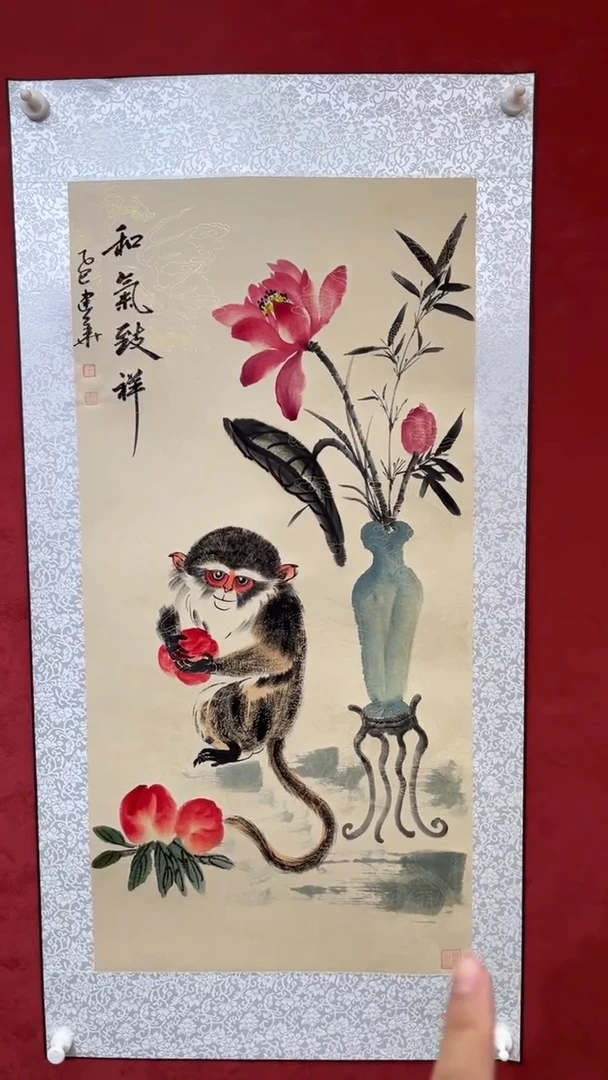 和氣致祥
乙巳建華